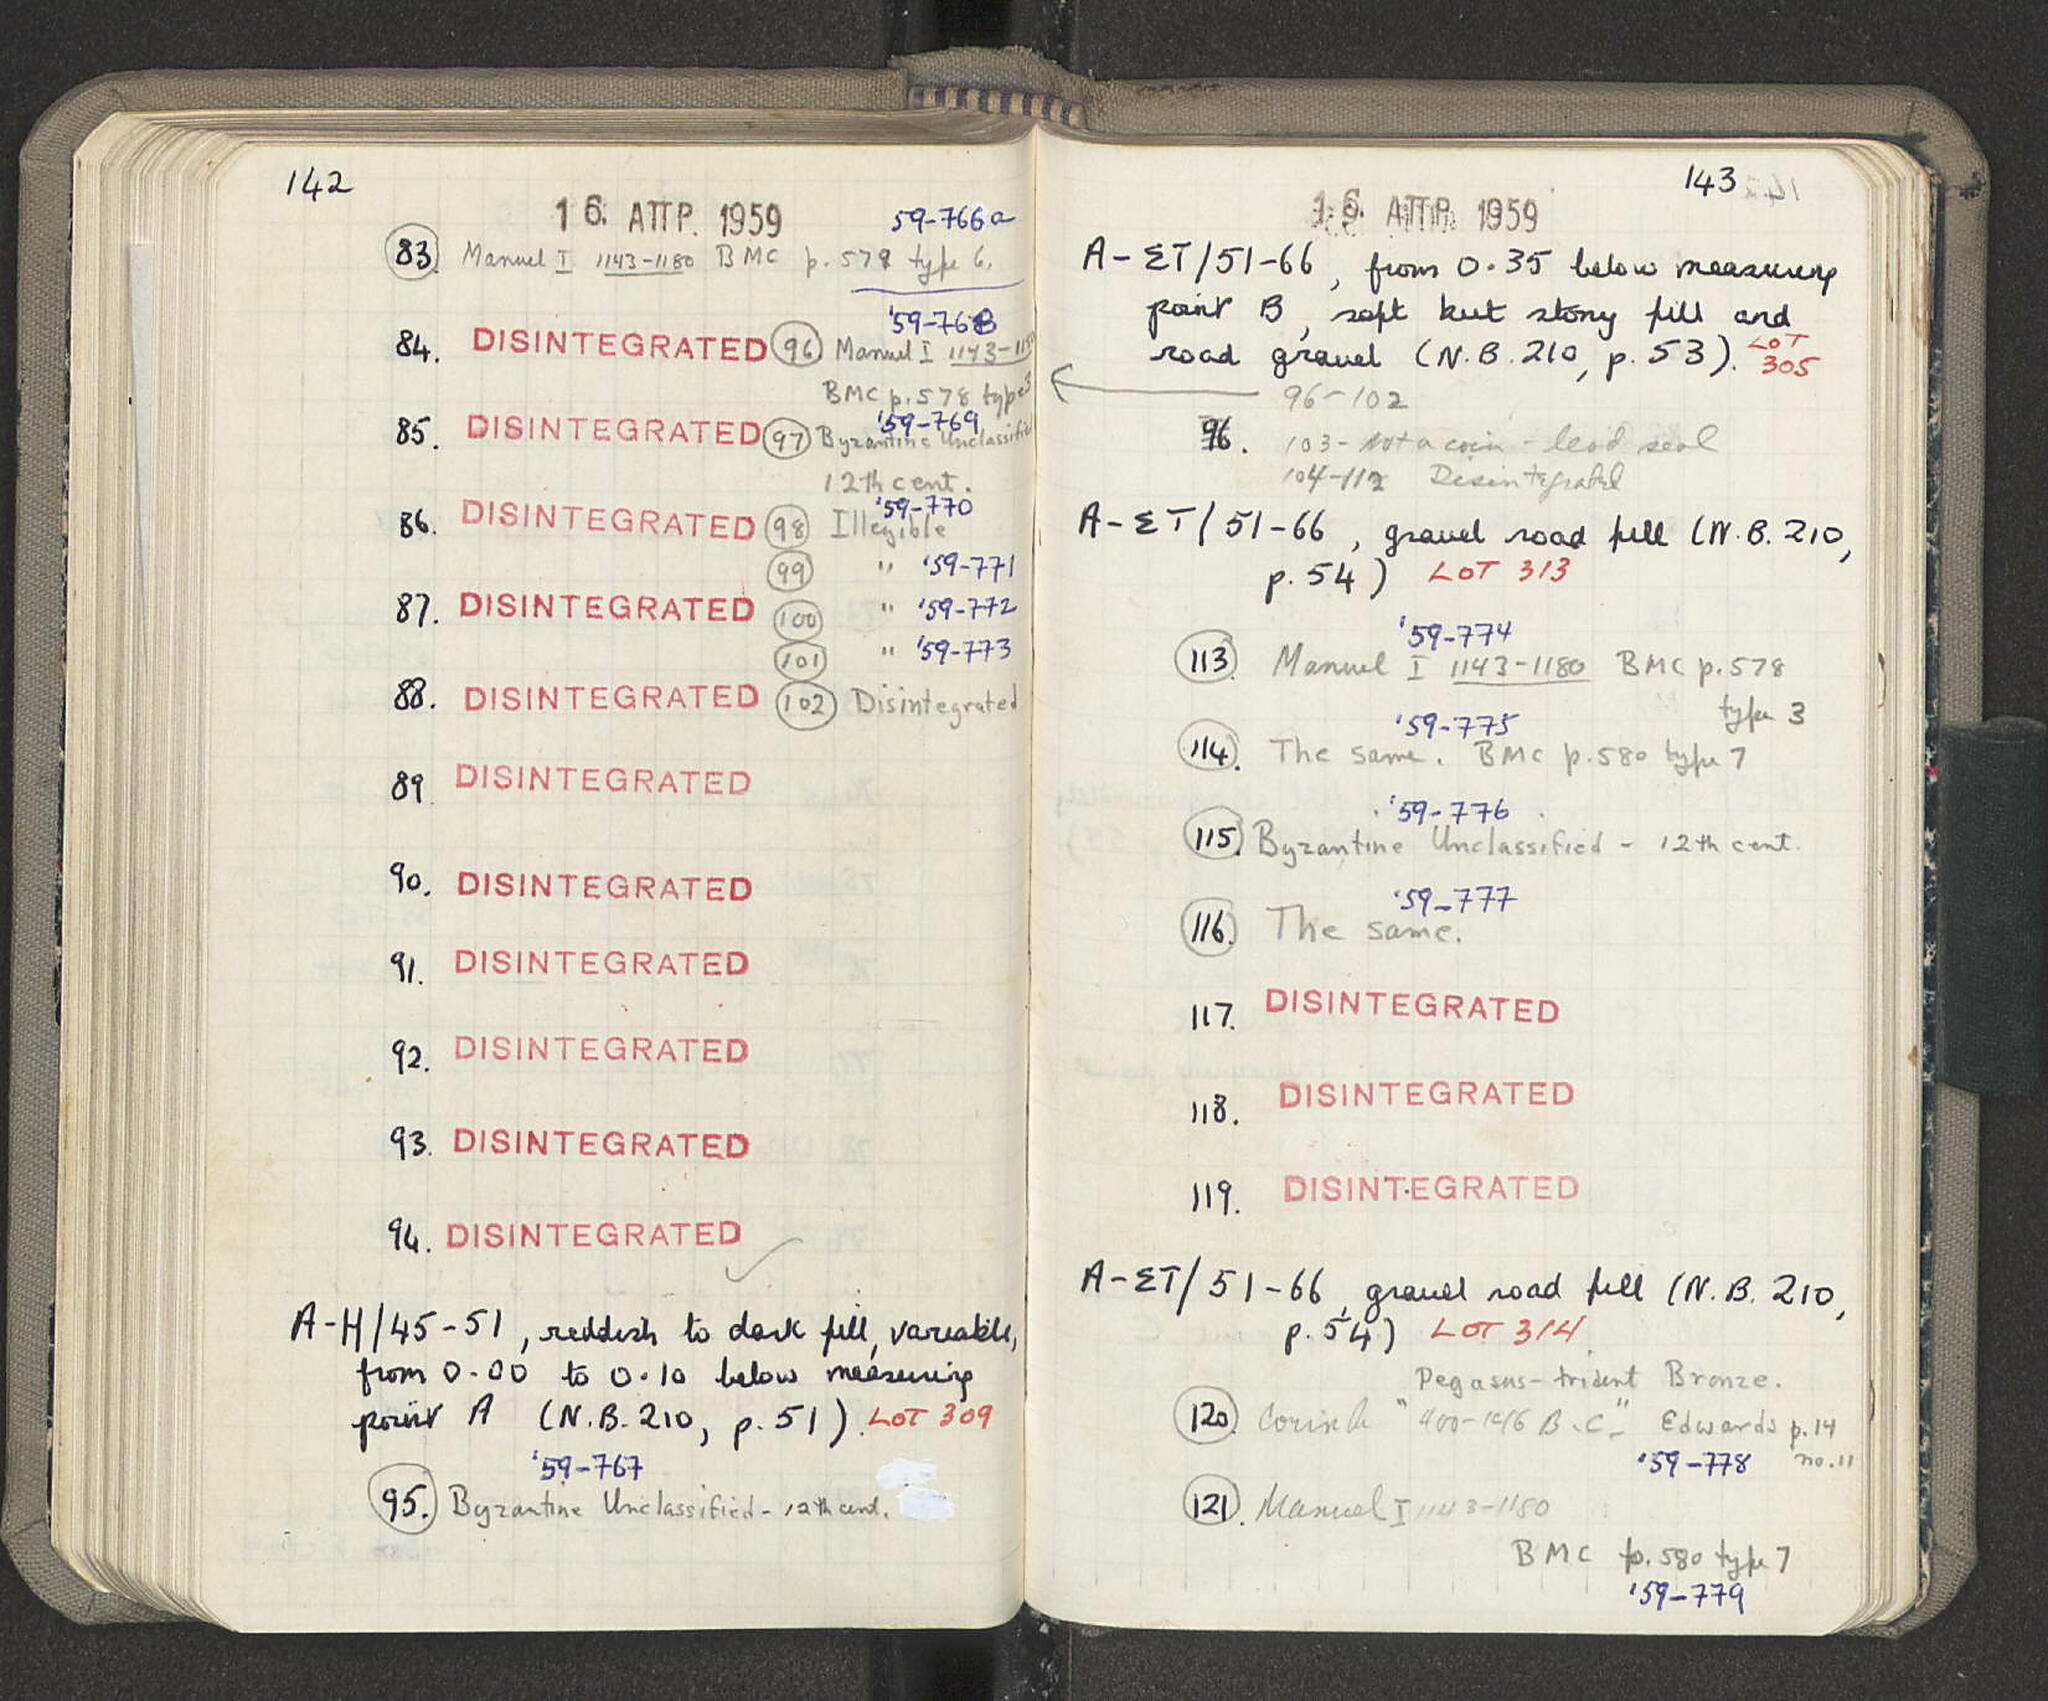 142
16. ΑΠΡ. 1959
59-766a
83. Manuel I 1143-1180 BMC p. 579 type 6.
84. DISINTEGRATED
85. DISINTEGRATED
86. DISINTEGRATED
87. DISINTEGRATED
88. DISINTEGRATED
89 DISINTEGRATED
90. DISINTEGRATED
91. DISINTEGRATED
92. DISINTEGRATED
93. DISINTEGRATED
94. DISINTEGRATED
'59-768
96 Manuel I 1143-1180
BMC p. 578 type 3
'59-769
97 Byzantine Unclassified
12th cent.
'59-770
98 Illegible
99 " '59-771
100 " '59-772
101 " '59-773
102 Disintegrated
A-H/45-51, reddish to dark fill, variable,
from 0.00 to 0.10 below measuring
point A (N.B. 210, p. 51). LOT 309
'59-767
95. Byzantine Unclassified - 12th cent.
143
16. ΑΠΡ. 1959
A-ΣT/51-66, from 0.35 below measuring
point B, soft but stony fill and
road gravel (N.B. 210, p. 53). LOT
305
96-102
96. 103 - not a coin - lead seal
104-112 Disintegrated
A-ΣT/51-66, gravel road fill (N.B. 210,
p. 54) LOT 313
'59-774
113. Manuel I 1143-1180 BMC p. 578
type 3
'59-775
114. The same. BMC p. 580 type 7
'59-776
115. Byzantine Unclassified - 12th cent.
'59-777
116. The same.
117. DISINTEGRATED
118. DISINTEGRATED
119. DISINTEGRATED
A-ΣT/51-66, gravel road fill (N.B. 210,
p. 54) LOT 314
Pegasus-trident Bronze.
120. Corinth "400-146 B.C." Edwards p. 14
'59-778 no. 11
121. Manuel I 1143-1180
BMC p. 580 type 7
'59-779